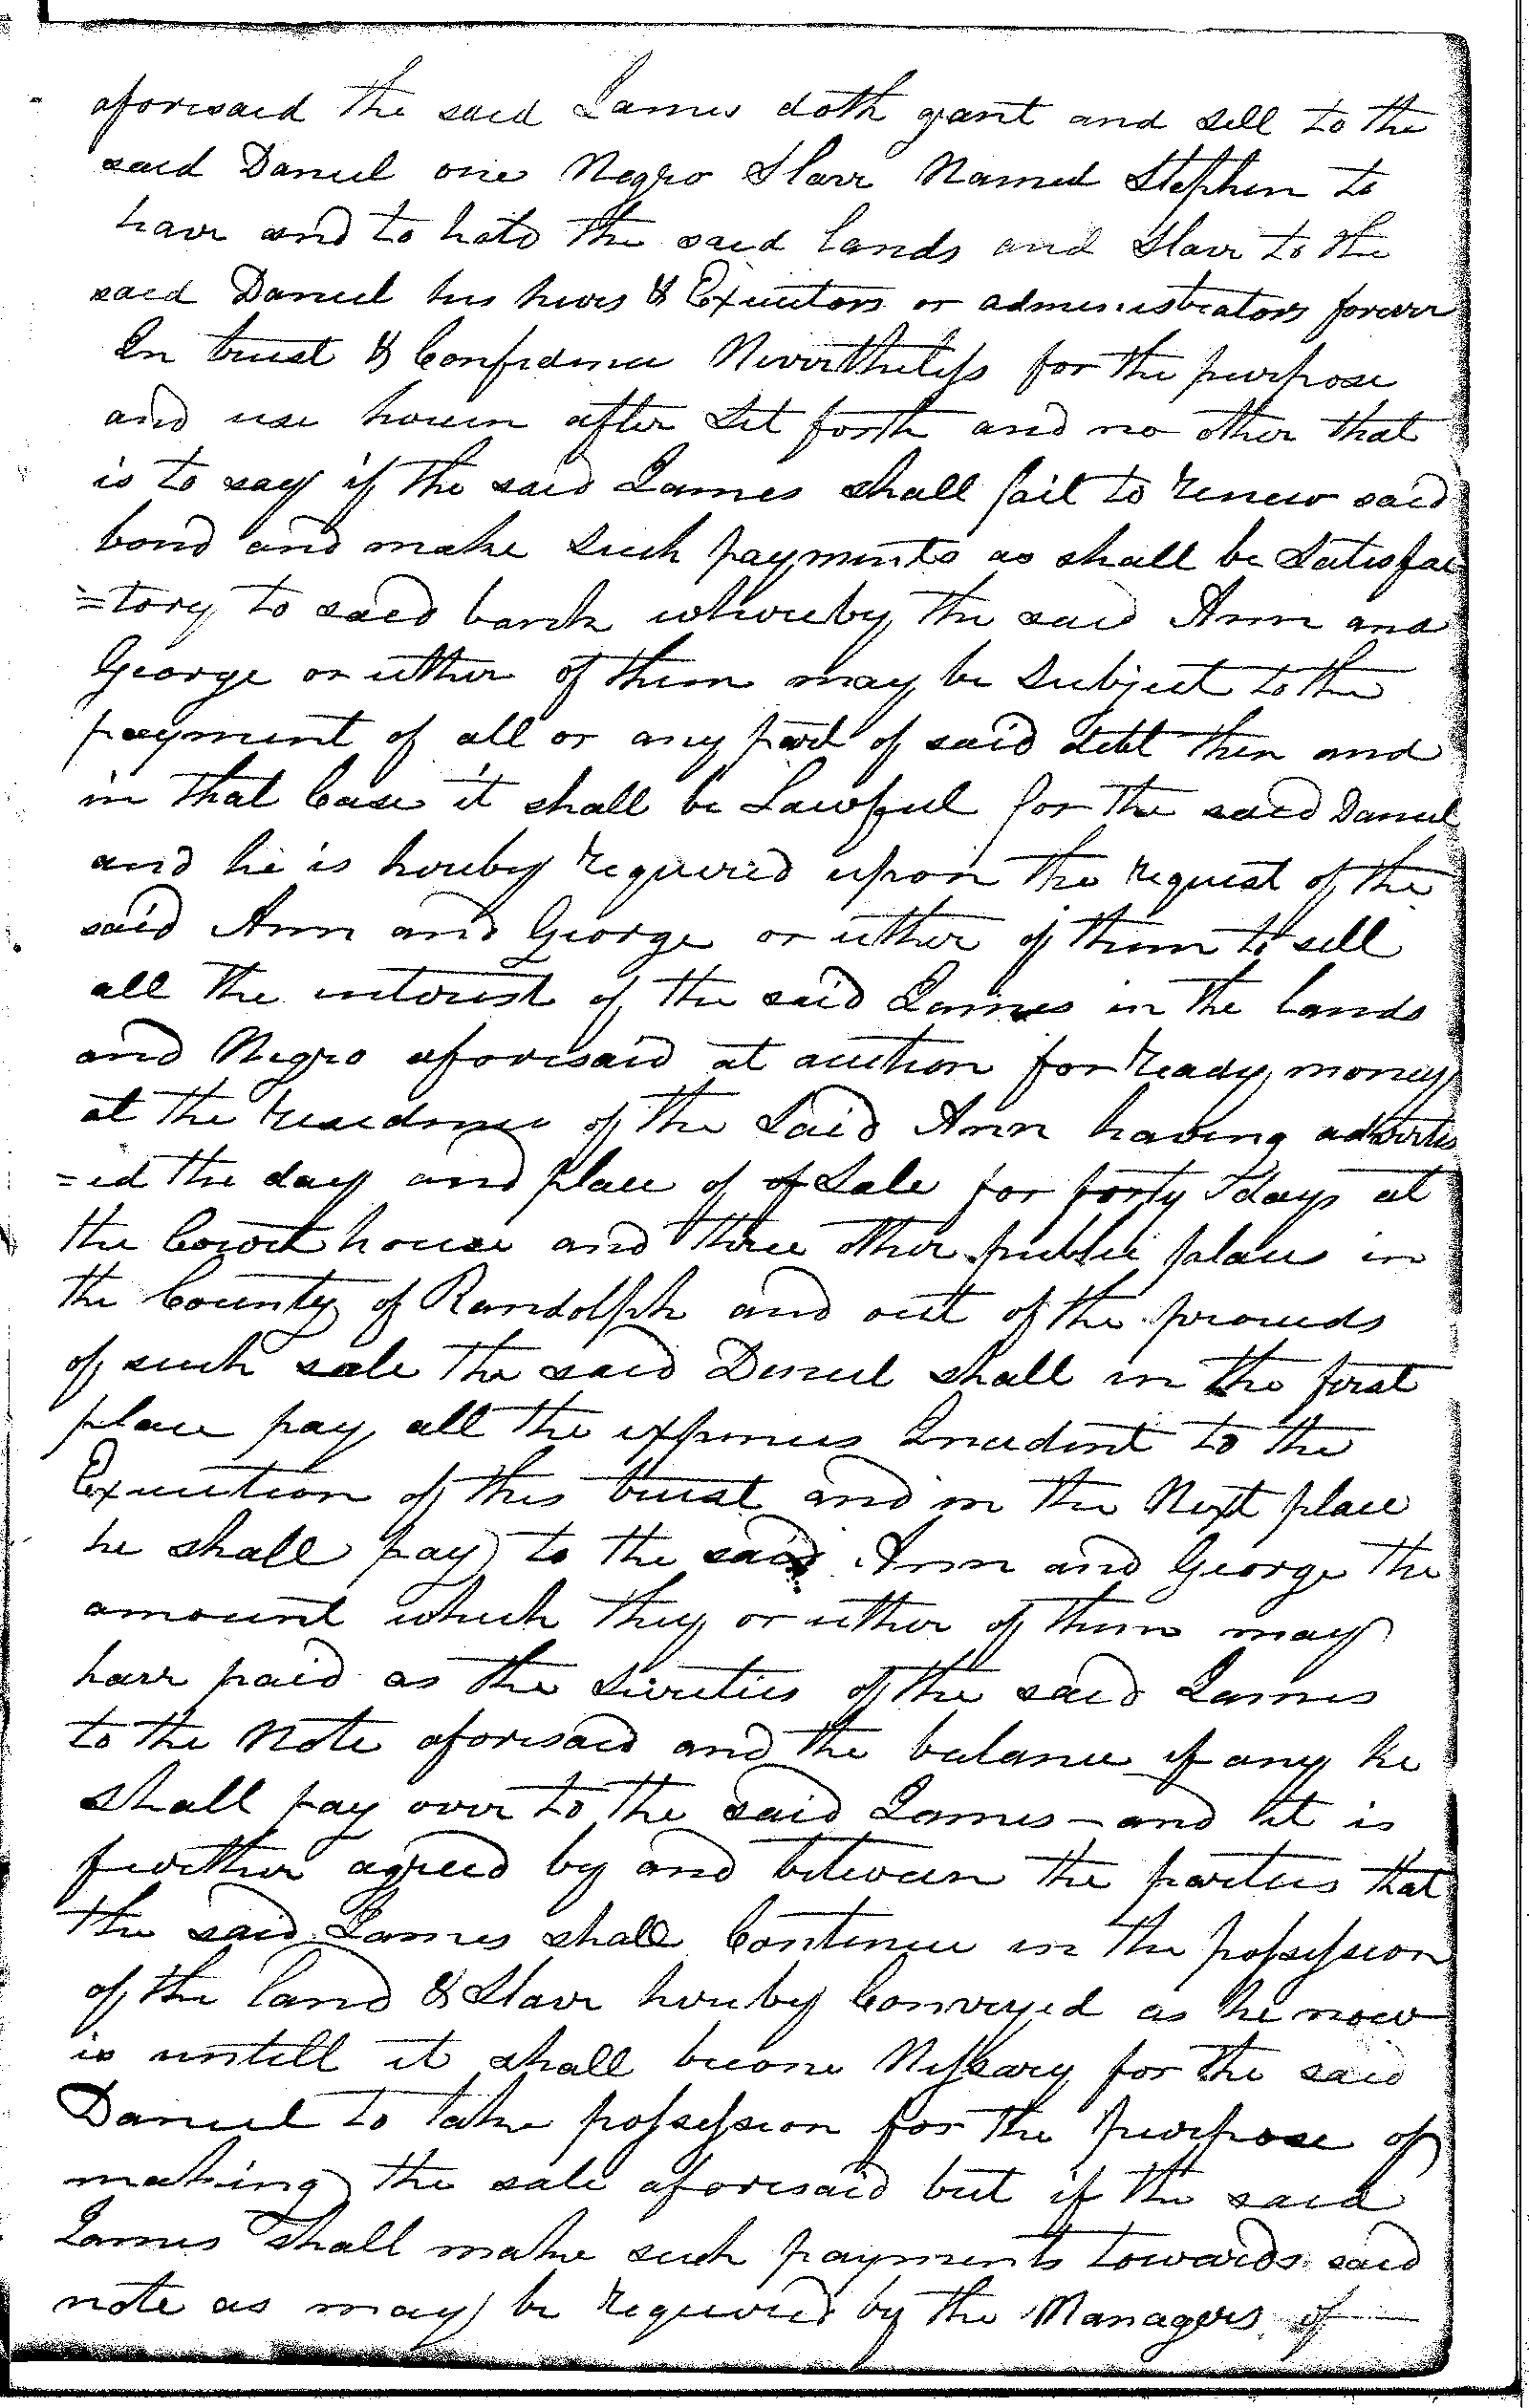 aforesaid the said James doth grant and sell to the
said Daniel one Negro Slave Named Stephen to
have and to hold the said lands and Slave to the
said Daniel his heires & Executors or administrators forever
In trust & Confidence Nevertheless for the purpose
and use herein after Set forth and no other that
is to say if the said James shall fail to renew said
bond and make Such payments as shall be Satisfac
=tory to said bank whereby the said Ann and
George or either of them may be Subject to the
payment of all or any part of said debt then and
in that Case it shall be Lawful for the said Daniel
and he is hereby required upon the request of the
said Ann and George or either of them to sell
all the interest of the said James in the lands
and Negro aforesaid at auction for ready money
at the residence of the Said Ann having advertis
=ed the day and place of of Sale for forty days at
the Court house and three other public places in
the County of Randolph and out of the proceeds
of such sale the said Daniel shall in the first
place pay all the expences Incident to the
Execution of this trust and in the Next place
he shall pay to the said Ann and George the
amount which they or either of them may
have paid as the Sureties of the said James
to the Note aforesaid and the balance if any he
shall pay over to the said James - and it is
further agreed by and between the parties that
the said James shall Continue in the possession
of the land & Slave hereby Conveyed as he now
is untill it shall become Nessary for the said
Daniel to take possession for the purpose of
making the sale aforesaid but if the said
James shall make such payments towards said
note as may be required by the Managers of